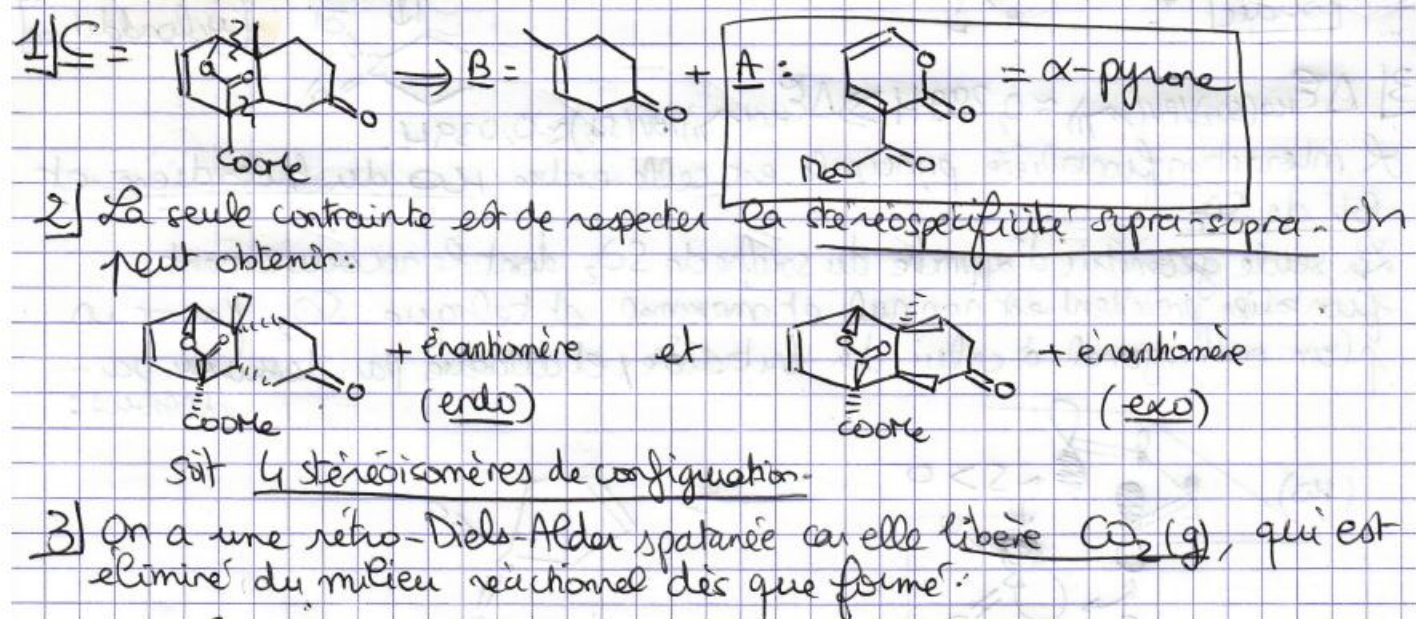 1] C = ⟹ B = + A : = α-pyrone
O O O O O O
COOMe MeO O
2] La seule contrainte est de respecter la stéréospécificité supra-supra. On
peut obtenir:
+ énantiomère et + énantiomère
O O O O O O
COOMe (endo) COOMe (exo)
soit 4 stéréoisomères de configuration.
3] On a une rétro-Diels-Alder spatanée car elle libère CO₂ (g), qui est
éliminé du milieu réactionnel dès que formé.